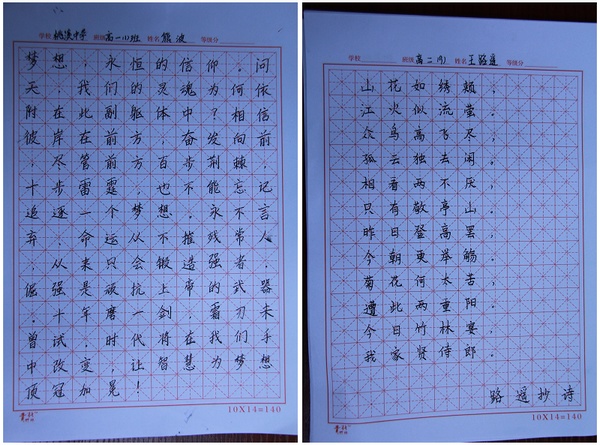 学校 桃溪中学 班级 高一(1)班 姓名 熊波 等级分
梦想，永恒的信仰。问
天，我们的灵魂为何依
附在此副躯体中？相信
彼岸在前方，奋发向前
，尽管前方百步荆棘，
十步雷霆，也不能忘记
追逐一个梦想，永不言
弃，命运从不摧残常人
，从来只会锻造强者，
倔强是顽抗上帝的武器
。十年磨一剑，霜刃未
曾试，时代将在我们手
中改变，让智慧为梦想
顶冠加冕！
10X14=140
学校 班级 高二(1) 姓名 王路遥 等级分
山花如绣颊，
江火似流萤。
众鸟高飞尽，
孤云独去闲，
相看两不厌，
只有敬亭山。
昨日登高罢，
今朝更举觞。
菊花何太苦，
遭此两重阳。
今日竹林宴，
我家贤侍郎。
路遥抄诗
10X14=140